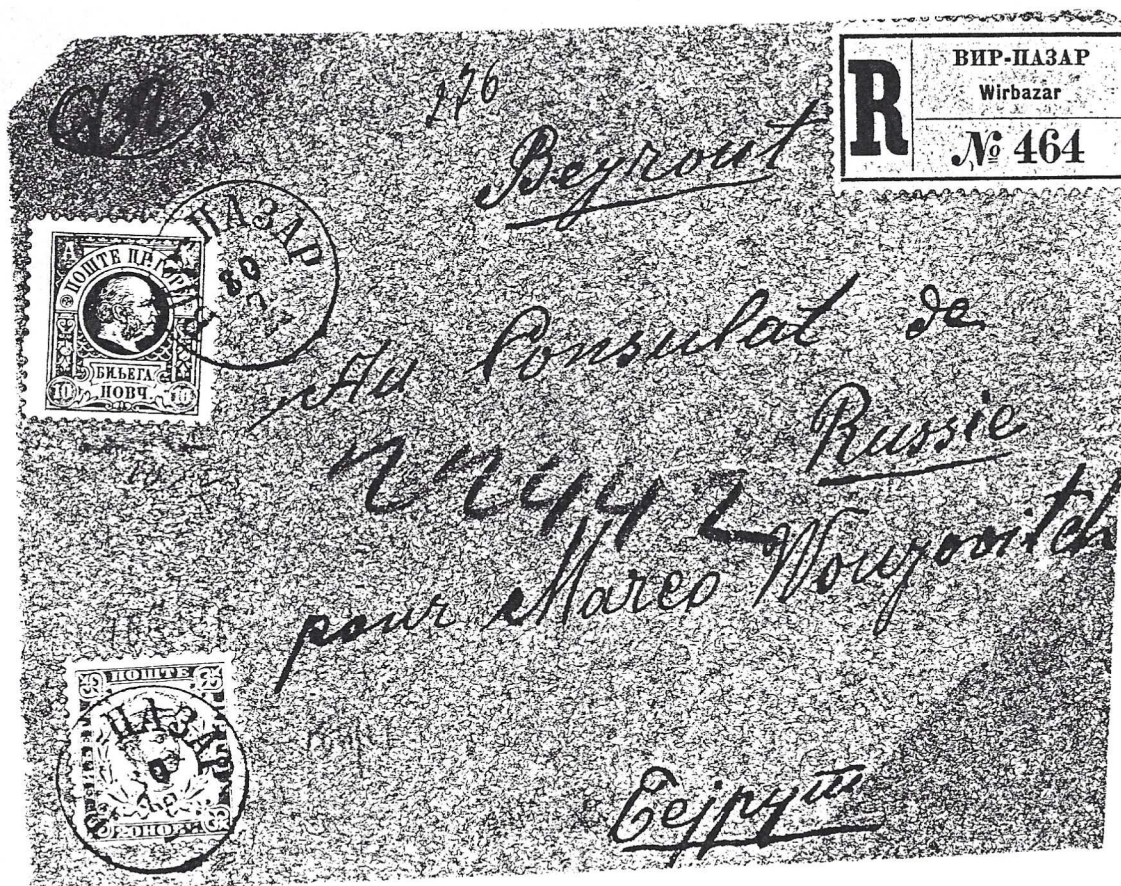 276
ВИР-ПАЗАР
Wirbazar
R
№ 464
Beyrout
ПАЗАР
ПОШТЕ ЦРН
10 БИЉЕГА 10
НОВЧ.
Au Consulat de
Russie
pour Marco Woujovitch
ПОШТЕ
ПАЗАР
Бејрут